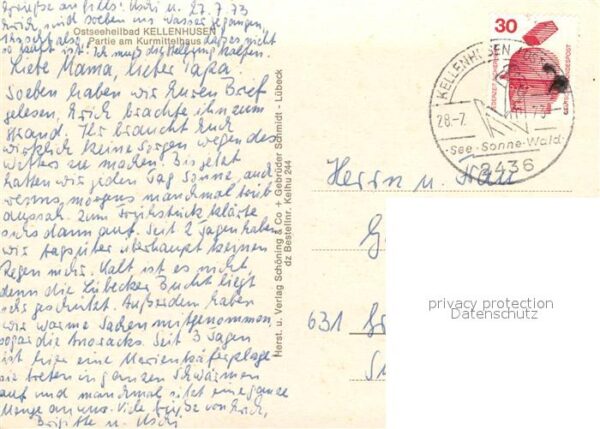 Grüße an alle! Uschi u. 27.7.73
Erich sind soeben ins Wasser gegangen,
daß es nicht
so kalt ist. Ich muß der
Ostseeheilbad KELLENHUSEN
Partie am Kurmittelhaus
Liebe Mama, lieber Papa.
Soeben haben wir Euren Brief
gelesen, Erich brachte ihn zum
Strand. Ihr braucht Euch
wirklich keine Sorgen wegen des
Wetters zu machen. Bis jetzt
hatten wir jeden Tag Sonne, auch
wenns morgens manchmal trüb
aussah. Zum Frühstück klärte
sichs dann auf. Seit 2 Tagen haben
wir tagsüber überhaupt keinen
Regen mehr. Kalt ist es nicht,
denn die Lübecker Bucht liegt
sehr geschützt. Außerdem haben
wir warme Sachen mitgenommen,
sogar die Anoracks. Seit 3 Tagen
ist hier eine Marienkäferplage
sie treten in ganzen Schwärmen
auf und manchmal sitzt eine ganze
Menge an uns. Viele von Erich,
Brigitte u. Uschi
Herst. u. Verlag Schöning & Co + Gebrüder Schmidt - Lübeck
dz Bestellnr. Kelhu 244
30
DEUTSCHE BUNDESPOST
KELLENHUSEN
28.-7.
See - Sonne - Wald
2436
Herrn u. Frau
631
privacy protection
Datenschutz